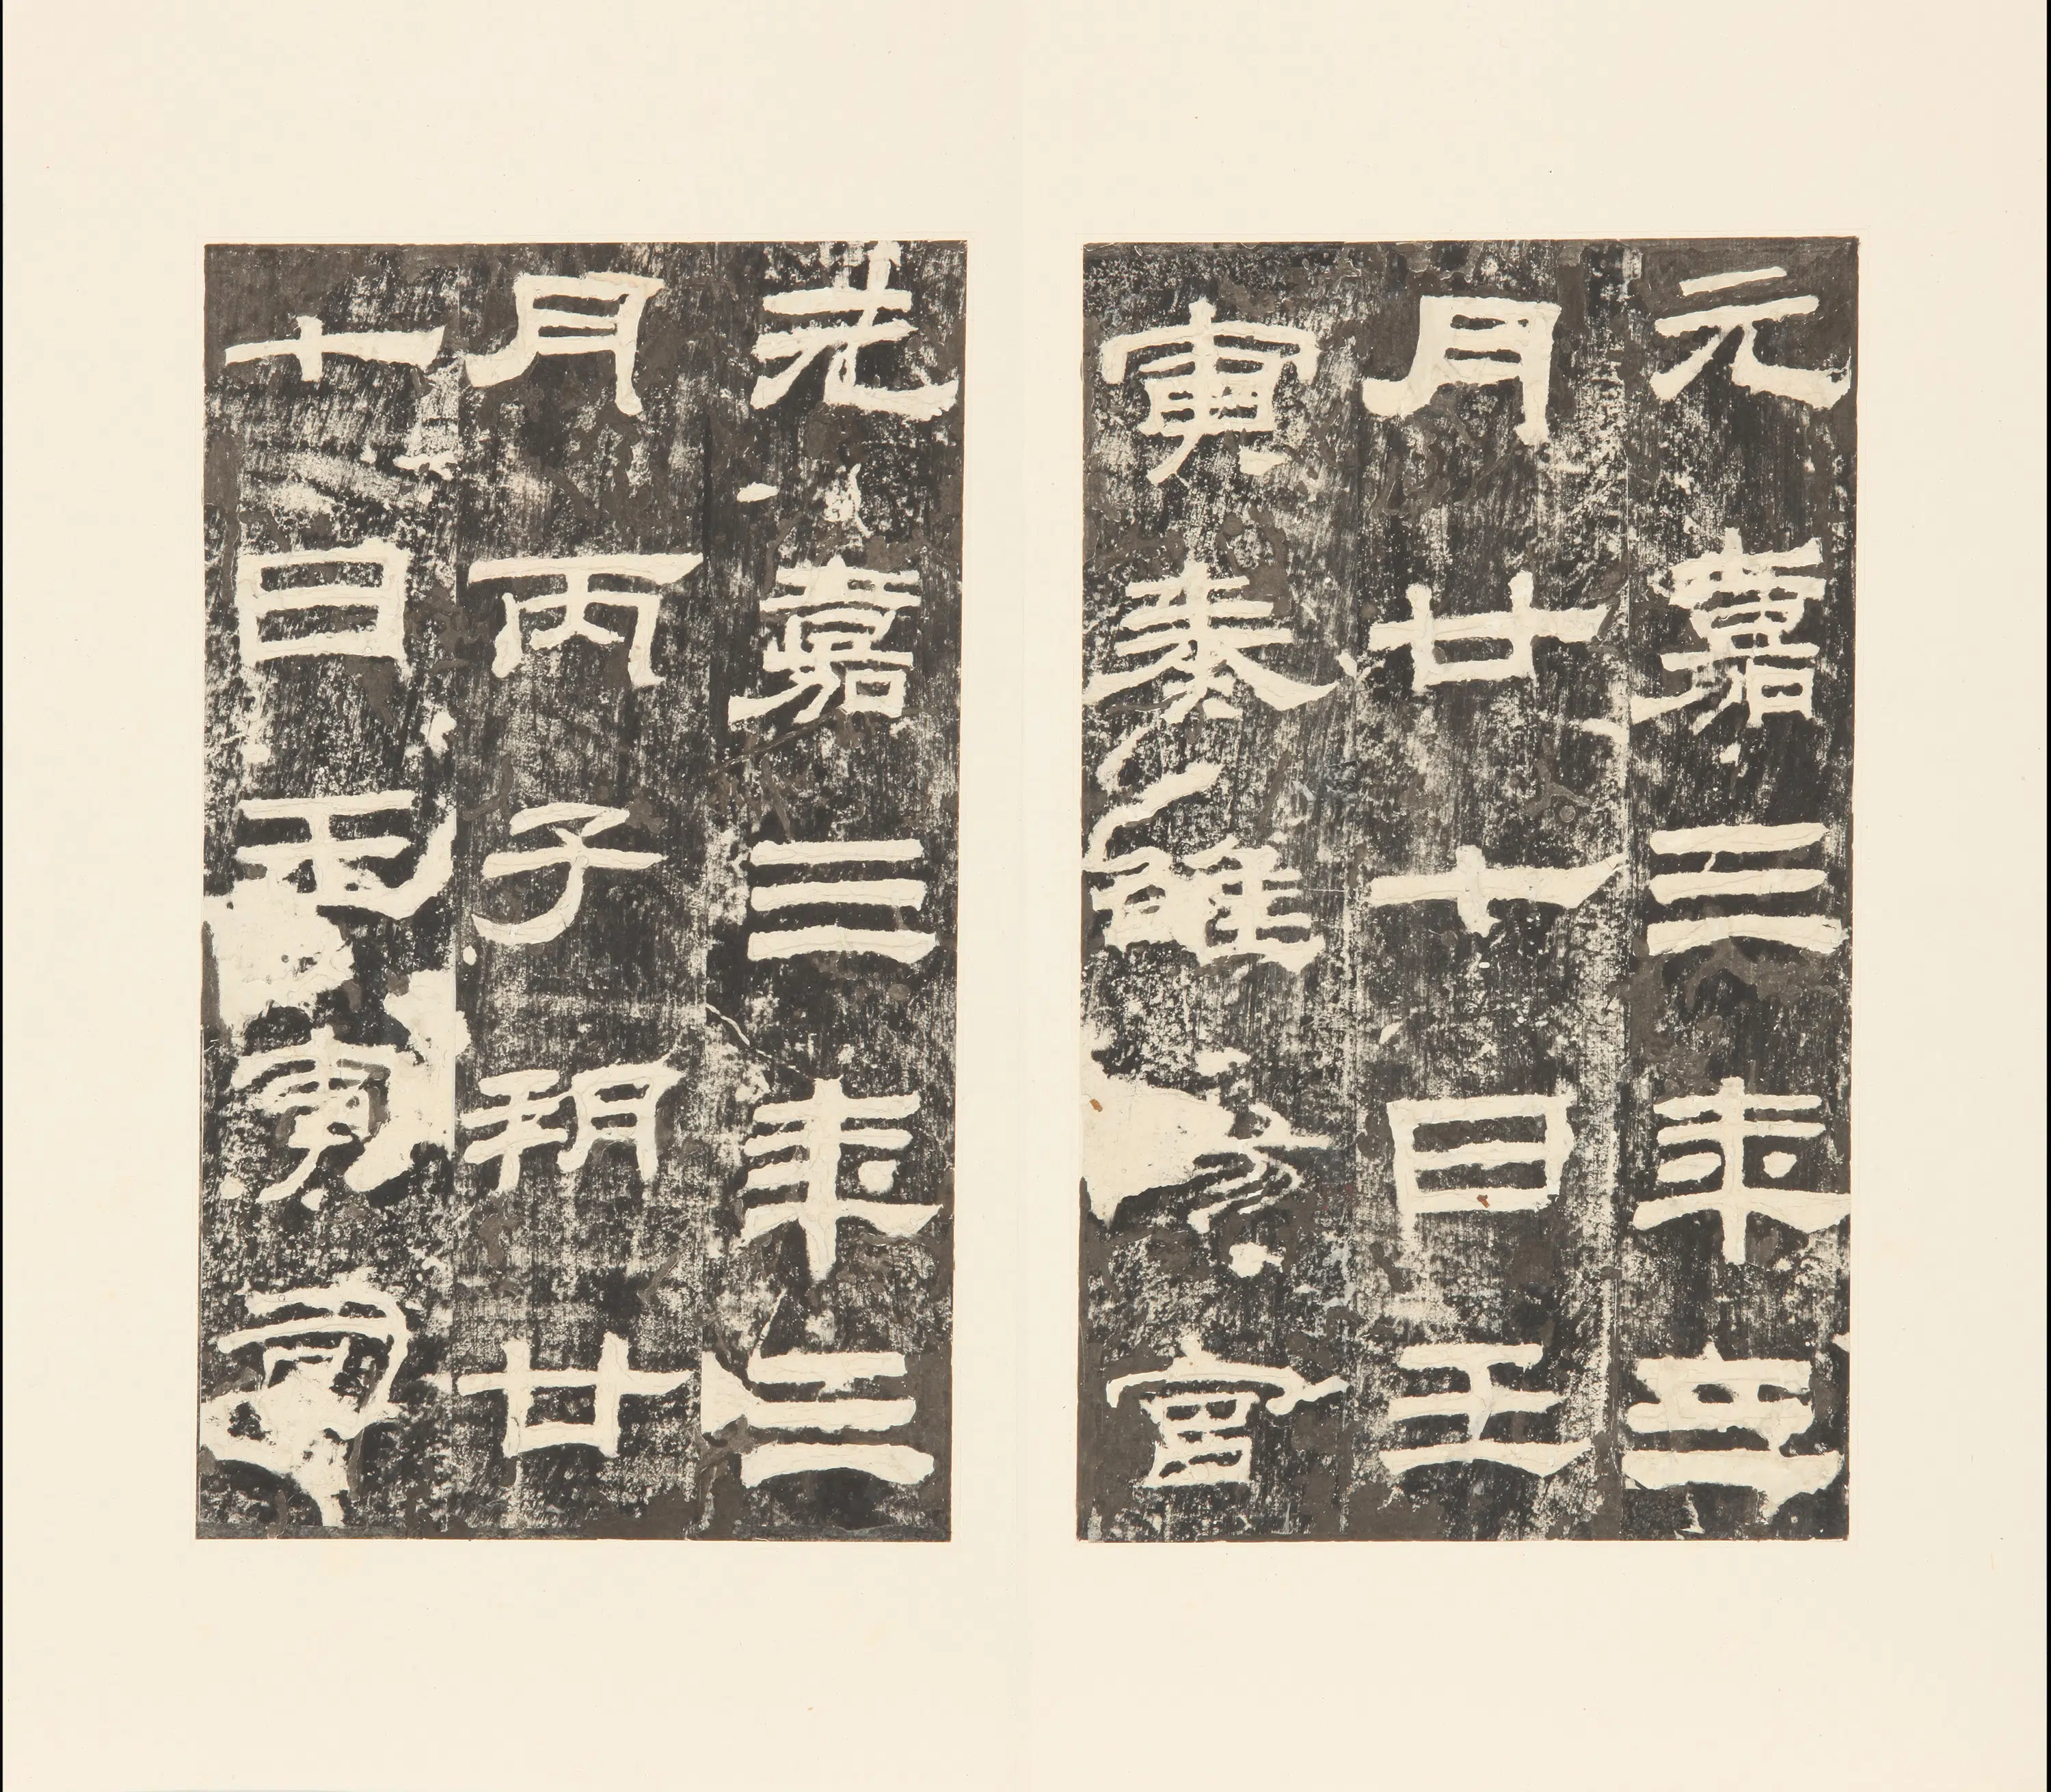 元嘉三年三
月廿七日壬
寅奏雒陽宮
元嘉三年三
月丙子朔廿
七日壬寅司